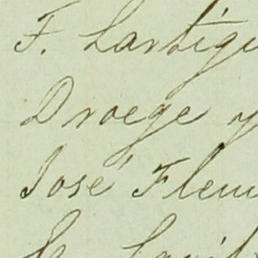 F. Lartigu
Droege y
José Flem